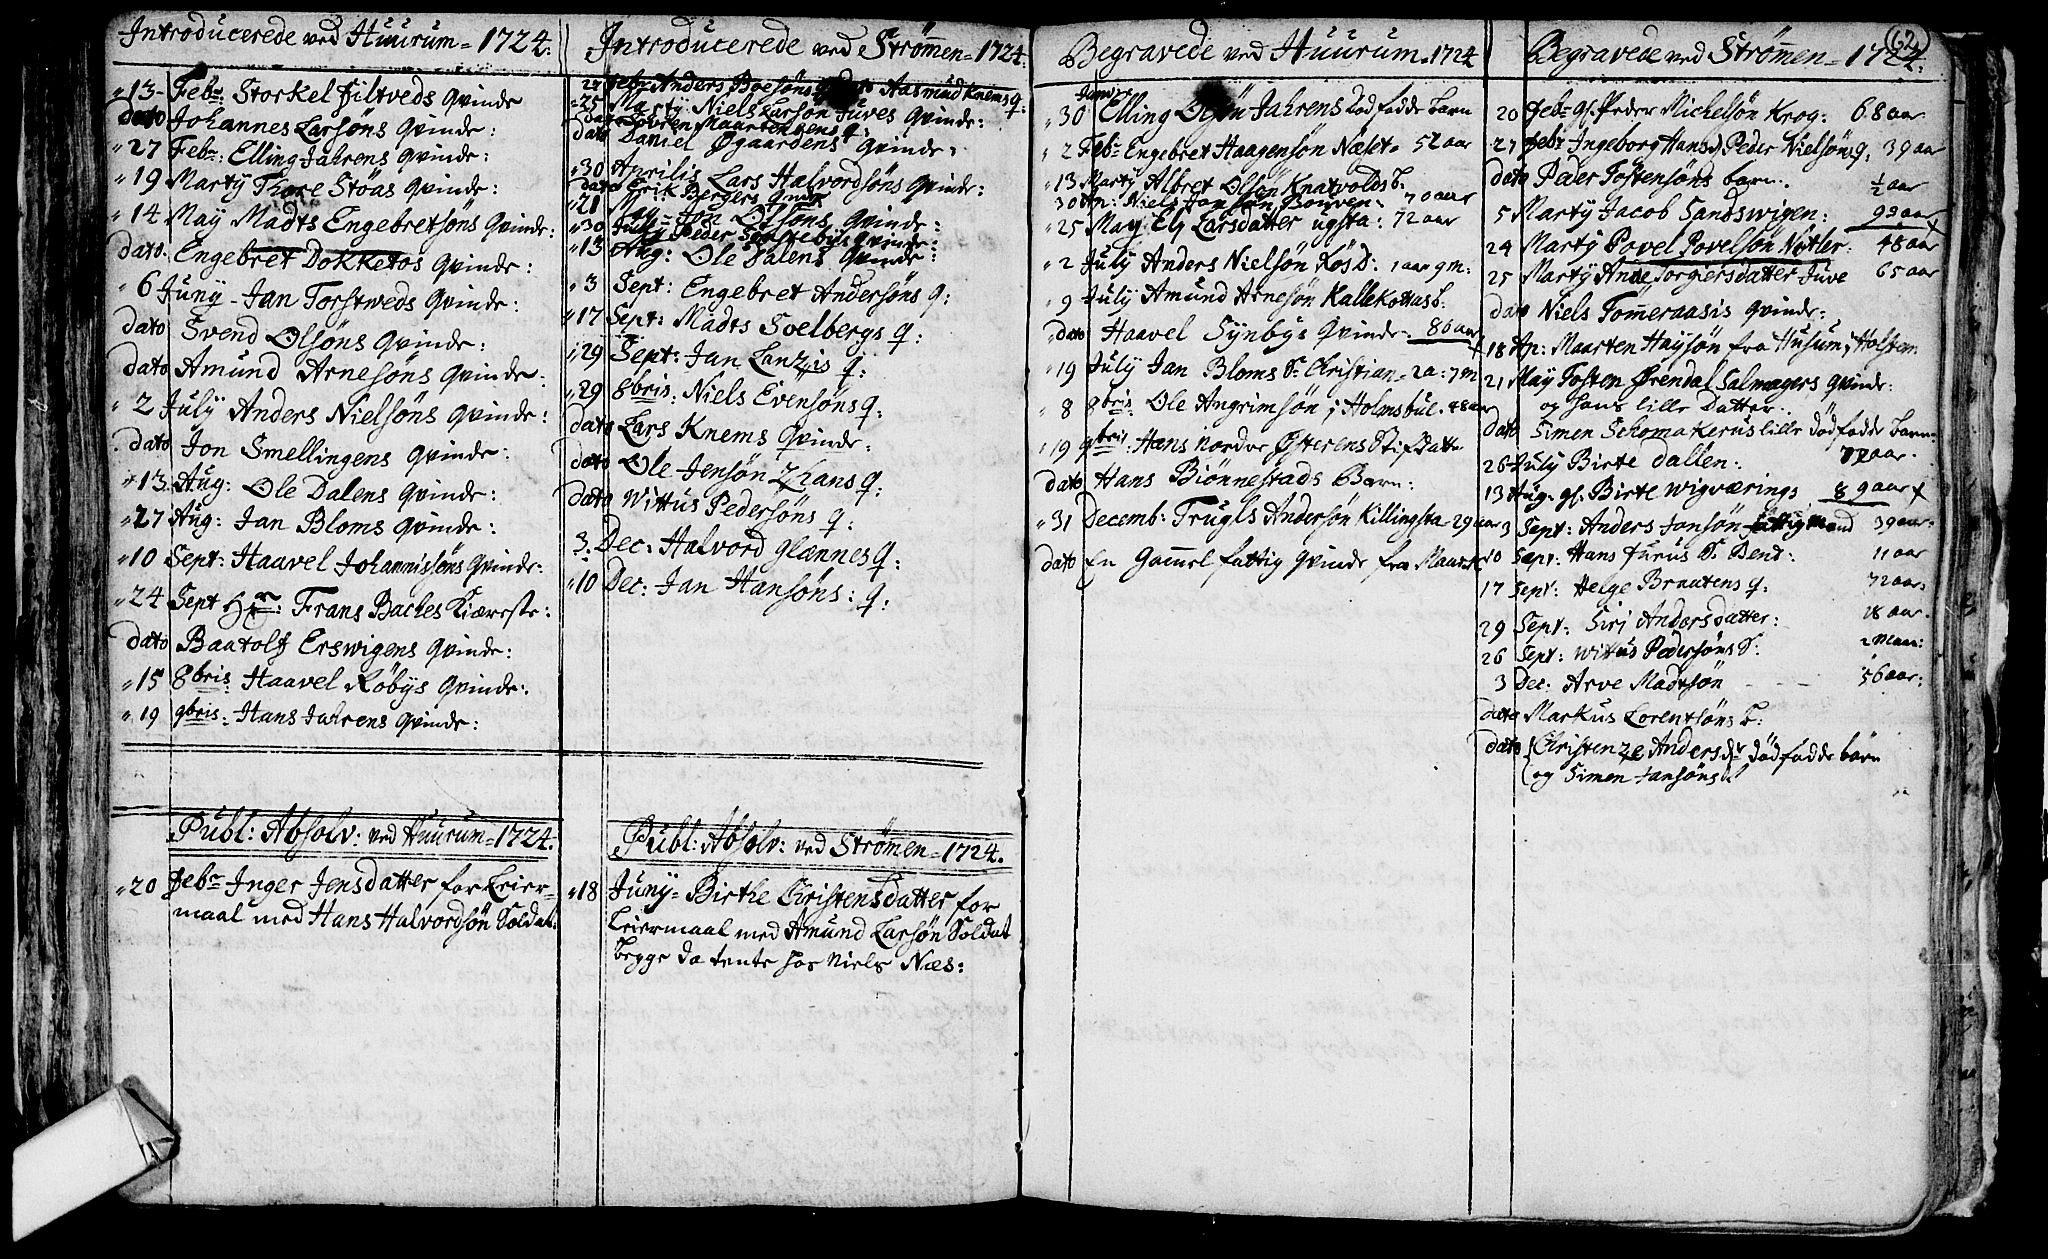 Introducerede ved Huurum = 1724.
13 Febr: Storkel Filtveds Qvinde
dato Johannes Larsøns Qvinde:
27 Febr: Elling Jahrens Qvinde:
19 Marty Thore Støas Qvinde:
14 May Madts Engebretsøns Qvinde:
dato. Engebret Dokketos Qvinde:
6 Juny - Jan Torstweds Qvinde:
dato Svend Olsøns Qvinde:
dato Amund Arnesøns Qvinde.
2 July Anders Nielsøns Qvinde:
dato Jon Smellingens Qvinde:
13. Aug: Ole Dalens Qvinde:
27 Aug: Jan Bloms Qvinde:
10 Sept: Haavel Johannissøns Qvinde:
24 Sept Hr: Frans Baches Kiæreste:
dato Baatolf Erswigens Qvinde:
15 8bris: Haavel Røbÿs Qvinde:
19 9bris: Hans Jahrens Qvinde:
Publ: Absolv: ved Huurum = 1724.
20 Febr Inger Jensdatter for Leier-
maal med Hans Halvordsøn Soldat:
Introducerede ved Strømmen = 1724.
27 Febr Anders Boesøns Aasmud Knems Q:
25 Marty: Niels Larsøn Juves Qvinde:
dato Søvren Maartensens q:
dato Daniel Øgaardens Qvinde:
30 Aprilis Lars Halvordsøns Qvinde:
dato Erik Bergers Qvinde
21 May = Jon Olsøns Qvinde:
30 July Peder Qvinde:
13 Aug: Ole Dalens Qvinde:
3 Sept: Engebret Andersøns q:
17 Sept: Madts Svelbergs q:
29 Sept: Jan Lanzis q:
29 8bris: Niels Evensøns q:
dato Lars Knems Qvinde:
dato Ole Jensøn Lhans q:
dato Wittus Pedersøns q:
3. Dec: Halvord Glænnes q:
10 Dec: Jan Hansøns: q:
Publ: Absolv: ved Strømen = 1724.
18 Juny = Birthe Christensdatter for
Leiermaal med Amund Larsøn Soldat
begge da tente hos Niels Næs:
Begravede ved Huurum = 1724
30 Janv: Elling Olsøn Jahrens dødfødde barn
2 Febr Engebret Haagensøn Næset = 52 aar
13 Marty Albret Olsøn Knatvolds b.
30 Ap: Niels Jonsøn Bouven: 70 aar
25 May Els Larsdatter ugsta: 72 aar
2 July Anders Nielsøn Køs D: 1 aar 9 m:
9 July Amund Arnesøn Kallekottas b.
dato Haavel Synbÿs Qvinde. 86 aar
19 July Jan Bloms S. Christian = 2 a: 7 m
8 8bris: Ole Angrimsøn i Holmsbul. 48 aar
19 9bris: Hans Nordre Østerens Stifdatt
dato Hans Biønnestads Barn:
31 Decemb: Trugls Andersøn Killingsta = 29 aar
dato En Gammel fattig Qvinde fra
62
Begravede ved Strømmen = 1724.
20 Febr gl. Peder Michelsøn Krog: 68 aar
27 Febr Ingeborg Hansd. Peder Nielsøns q: 39 aar
dato Peder Tostensøns barn: ½ aar
5 Marty Jacob Sandswigen: 93 aar
24 Marty Povel Povelsøn Nøtler. 48 aar
25 Marty Anne Torgiersdatter Juve 65 aar
dato Niels Tomeraasis Qvinde:
18 Ap: Maarten Haysøn fra Husum i Holsten
21 May Tosten Ørendal Salmagers Qvinde:
og hans lille Datter:
dato Simen Schomakerus lille dødfødde barn:
26 July Birte Dallen: 72 aar.
13 Aug. gl. Birte Wigværings 89 aar
3 Sept: Anders Jonsøn fattig mand 39 aar:
10 Sept: Hans Furus S. Bent: 11 aar
17 Sept: Helge Braatens q: 72 aar:
29 Sept: Siri Andersdatter: 18 aar.
26 Sept: Wittus Pedersøns S: 2 Maan:
3 Dec: Arve Madtsøn - - - 56 aar:
dato Markus Lorentsøns b:
dato Christenze Andersdr dødfødde børn
og Simen Jansøns